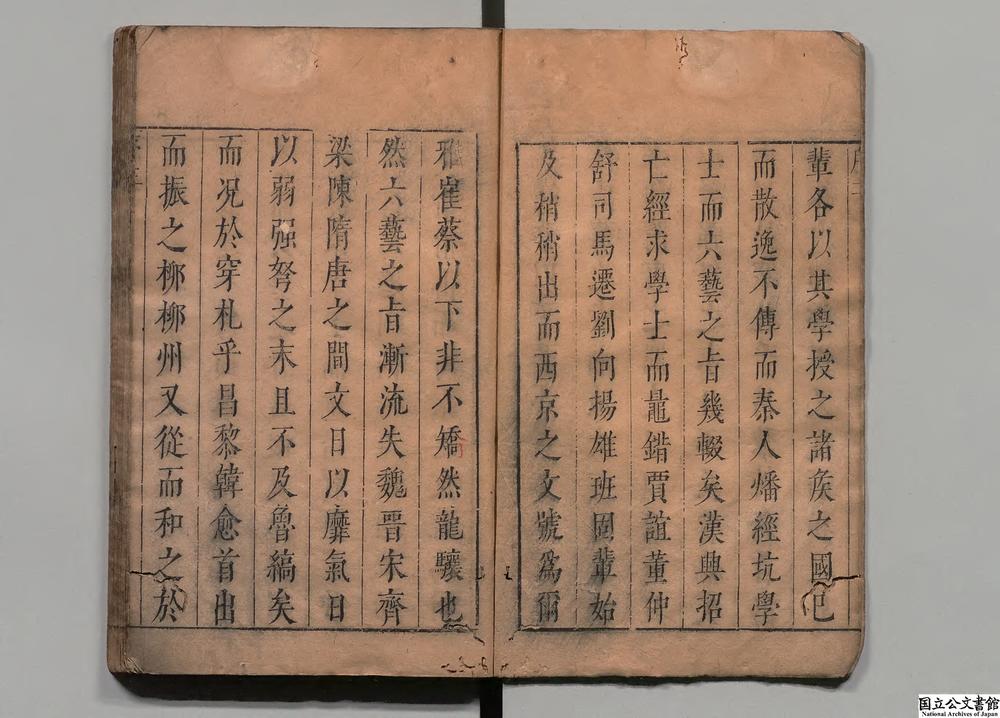 輩各以其學授之諸矦之國已
而散逸不傳而秦人燔經坑學
士而六藝之旨幾輟矣漢興招
亡經求學士而鼂錯賈誼董仲
舒司馬遷劉向揚雄班固輩始
及稍稍出而西京之文號爲爾
雅崔蔡以下非不矯然龍驤也
然六藝之旨漸流失魏晉宋齊
梁陳隋唐之間文日以靡氣日
以弱强弩之末且不及魯縞矣
而况於穿札乎昌黎韓愈首出
而振之柳柳州又從而和之於
国立公文書館
National Archives of Japan